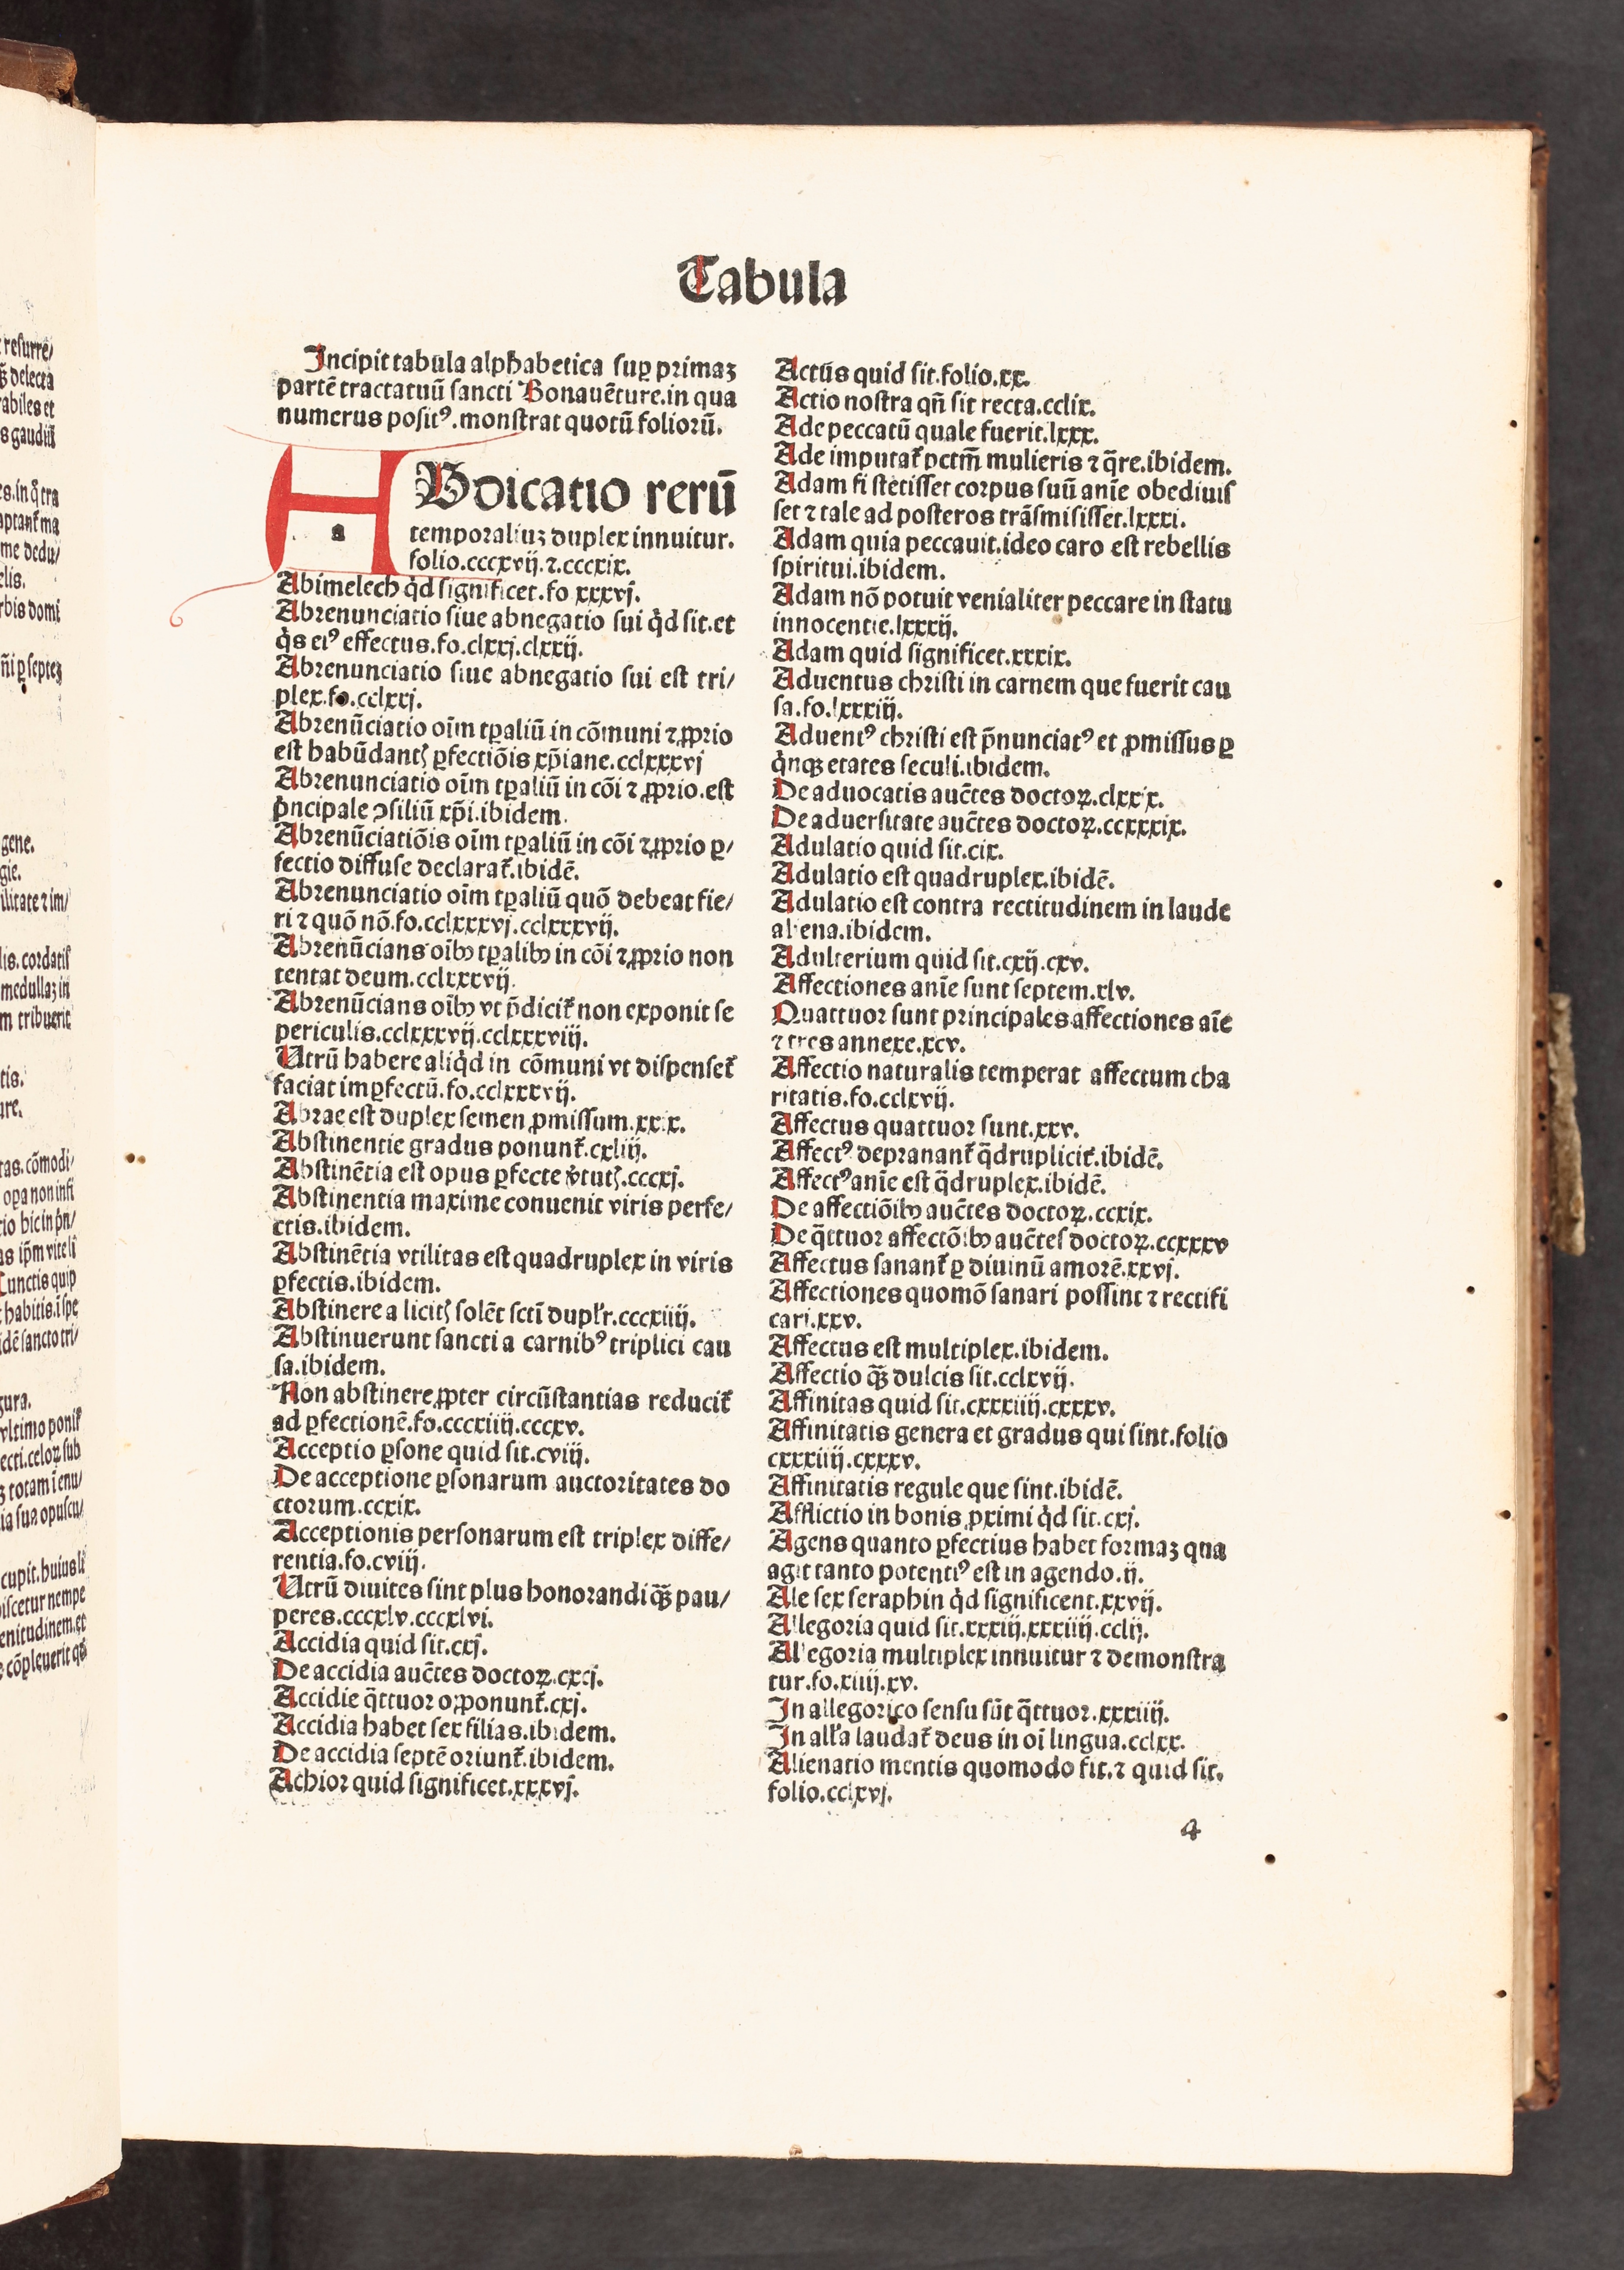 Tabula
Incipit tabula alphabetica suꝑ primaꝫ
partē tractatuū sancti Bonauēture.in qua
numerus positꝰ.monstrat quotū foliorū.
ABdicatio rerū
a
temporaliuꝫ duplex innuitur.
folio.cccxvij.⁊.cccxix.
Abimelech qͥd significet.fo xxxvj.
Abrenunciatio siue abnegatio sui qͥd sit.et
qͥs eiꝰ effectus.fo.clxxj.clxxij.
Abrenunciatio siue abnegatio sui est tri/
plex.fo.cclxxj.
Abrenūciatio oīm tꝑaliū in cōmuni ⁊ ꝓprio
est habūdantꝭ ꝑfectiōis xp̄iane.cclxxxvj
Abrenunciatio oīm tꝑaliū in cōi ⁊ ꝓprio.est
pͥncipale ꝯsiliū xp̄i.ibidem.
Abrenūciatiōis oīm tꝑaliū in cōi ⁊ ꝓprio ꝑ/
fectio diffuse declarat᷑.ibidē.
Abrenunciatio oīm tꝑaliū quō debeat fie/
ri ⁊ quō nō.fo.cclxxxvj.cclxxxvij.
Abrenūcians oībꝫ tꝑalibꝫ in cōi ⁊ ꝓprio non
tentat deum.cclxxxvij.
Abrenūcians oībꝫ vt p̄dicit᷑ non exponit se
periculis.cclxxxvij.cclxxxviij.
Utrū habere aliqͥd in cōmuni vt dispenset᷑
faciat imꝑfectū.fo.cclxxxvij.
Abrae est duplex semen ꝓmissum.xxix.
Abstinentie gradus ponunt᷑.cxliij.
Abstinētia est opus ꝑfecte v̓tutꝭ.cccxj.
Abstinentia maxime conuenit viris perfe/
ctis.ibidem.
Abstinētia vtilitas est quadruplex in viris
ꝑfectis.ibidem.
Abstinere a licitꝭ solēt sctī duplr̓.cccxiiij.
Abstinuerunt sancti a carnibꝰ triplici cau
sa.ibidem.
Non abstinere ꝓpter circūstantias reducit᷑
ad ꝑfectionē.fo.cccxiiij.cccxv.
Acceptio ꝑsone quid sit.cviij.
De acceptione ꝑsonarum auctoritates do
ctorum.ccxix.
Acceptionis personarum est triplex diffe/
rentia.fo.cviij.
Utrū diuites sint plus honorandi qꝫ̄ pau/
peres.cccxlv.cccxlvi.
Accidia quid sit.cxj.
De accidia auc̄tes doctoꝝ.cxcj.
Accidie q̄ttuor oꝓponunt᷑.cxj.
Accidia habet sex filias.ibidem.
De accidia septē oriunt᷑.ibidem.
Achior quid significet.xxxvj.
Actūs quid sit.folio.xx.
Actio nostra qn̄ sit recta.cclix.
Ade peccatū quale fuerit.lxxx.
Ade imputat᷑ pctm̄ mulieris ⁊ q̄re.ibidem.
Adam si stetisset corpus suū anīe obediuis
set ⁊ tale ad posteros trāsmisisset.lxxxi.
Adam quia peccauit.ideo caro est rebellis
spiritui.ibidem.
Adam nō potuit venialiter peccare in statu
innocentie.lxxxij.
Adam quid significet.xxxix.
Aduentus christi in carnem que fuerit cau
sa.fo.lxxxiij.
Aduentꝰ christi est p̄nunciatꝰ et ꝓmissus ꝑ
qͥnqꝫ etates seculi.ibidem.
De aduocatis auc̄tes doctoꝝ.clxxix.
De aduersitate auc̄tes doctoꝝ.ccxxxix.
Adulatio quid sit.cix.
Adulatio est quadruplex.ibidē.
Adulatio est contra rectitudinem in laude
aliena.ibidem.
Adulterium quid sit.cxij.cxv.
Affectiones anīe sunt septem.xlv.
Quattuor sunt principales affectiones aīe
⁊ tres annexe.xcv.
Affectio naturalis temperat affectum cha
ritatis.fo.cclxvij.
Affectus quattuor sunt.xxv.
Affectꝰ depranant᷑ q̄druplicit᷑.ibidē.
Affectꝰ anīe est q̄druplex.ibidē.
De affectiōibꝫ auc̄tes doctoꝝ.ccxix.
De q̄ttuor affectōibꝫ auc̄tes doctoꝝ.ccxxxv
Affectus sanant᷑ ꝑ diuinū amorē.xxvj.
Affectiones quomō sanari possint ⁊ rectifi
cari.xxv.
Affectus est multiplex.ibidem.
Affectio qꝫ̄ dulcis sit.cclxvij.
Affinitas quid sit.cxxxiiij.cxxxv.
Affinitatis genera et gradus qui sint.folio
cxxxiiij.cxxxv.
Affinitatis regule que sint.ibidē.
Afflictio in bonis ꝓximi qͥd sit.cxj.
Agens quanto ꝑfectius habet formaꝫ qua
agit tanto potentiꝰ est in agendo.ij.
Ale sex seraphin qͥd significent.xxvij.
Allegoria quid sit.xxxiij.xxxiiij.cclij.
Allegoria multiplex innuitur ⁊ demonstra
tur.fo.xiiij.xv.
In allegorico sensu sūt q̄ttuor.xxxiiij.
In all̓a laudat᷑ deus in oī lingua.cclxx.
Alienatio mentis quomodo fit.⁊ quid sit.
folio.cclxvj.
4